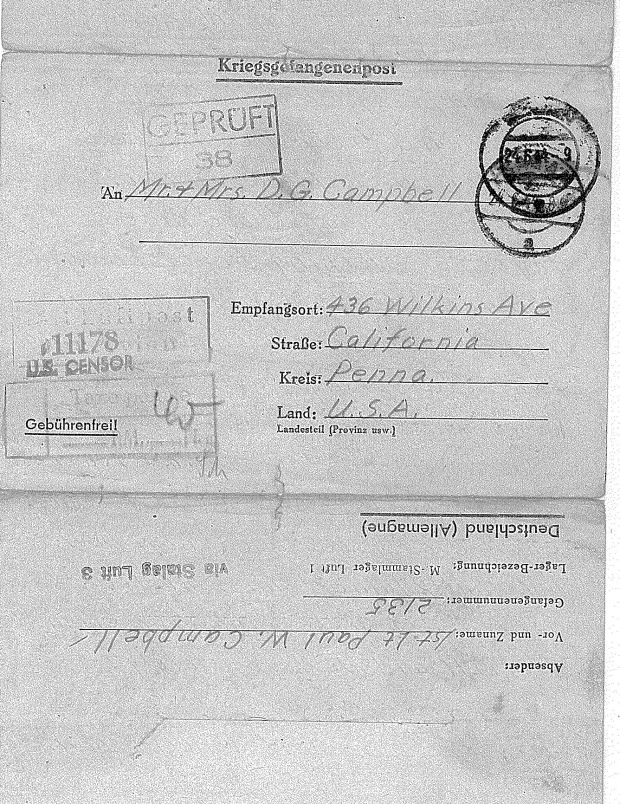 Kriegsgefangenenpost
GEPRÜFT
38
An Mr. & Mrs. D. G. Campbell
Empfangsort: 436 Wilkins Ave
Straße: California
Kreis: Penna.
Land: U.S.A.
Landesteil (Provinz usw.)
11178
U.S. CENSOR
Gebührenfrei!
Absender:
Vor- und Zuname: 1st Lt Paul W. Campbell
Gefangenennummer: 2135
Lager-Bezeichnung: M.-Stammlager Luft 1
via Stalag Luft 3
Deutschland (Allemagne)